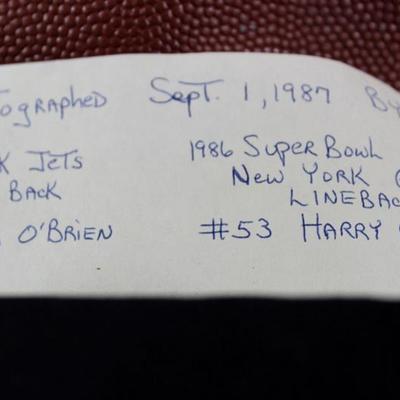 tographed Sept. 1, 1987 By
k Jets 1986 Super Bowl
Back New York G
Lineback
O'Brien #53 Harry